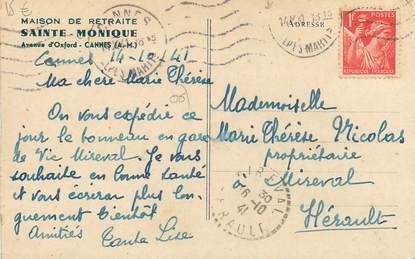 15 €
MAISON DE RETRAITE
SAINTE-MONIQUE
Avenue d'Oxford - CANNES (A.-M.)
Cannes 14-10-41
Ma chère Marie Thérèse
On vous expédie ce
jour le tonneau en gare
de Vic Mireval. Je vous
souhaite en bonne santé
et vous écrirai plus lon-
guement bientôt
Amitiés Tante Lise
CANNES
ALPES-MARIT
ADRESSE
1F
POSTES
REPUBLIQUE FRANÇAISE
Mademoiselle
Marie Thérèse Nicolas
propriétaire
à Mireval
Hérault
MIREVAL
16-10
41
HÉRAULT